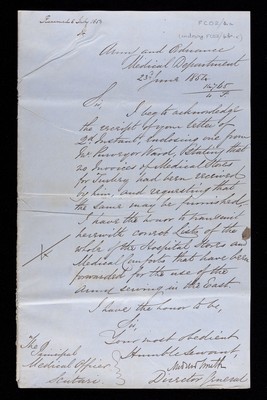 Army and Ordnance
Medical Department
23 June 1854
Sir,
I beg to acknowledge
the receipt of your letter of
2d Instant, enclosing one from
Mr Purveyor Ward, Stating that
no Invoices of Medical Stores
for Turkey had been received
by him, and requesting that
the same may be furnished,
I have the honor to transmit
herewith correct Lists of the
whole of the Hospital Stores and
Medical Comforts that have been
forwarded for the use of the
Army serving in the East
I have the honor to be,
Sir,
Your most obedient
Humble Servant,
Smith
Director General
The
Principal
Medical Officer
Scutari.